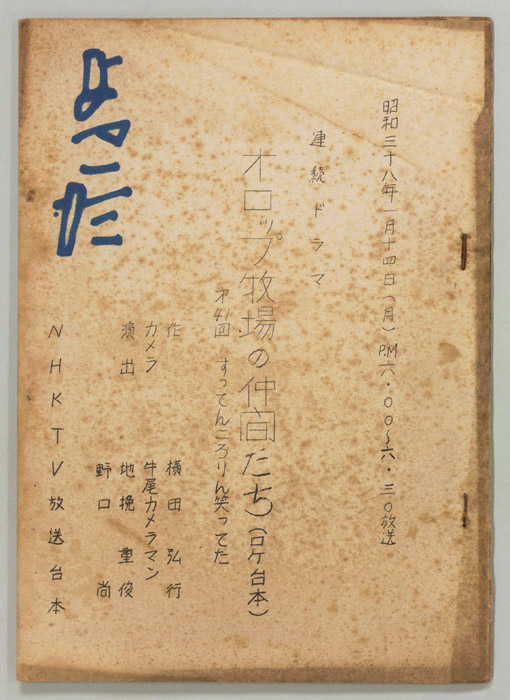 昭和三十八年一月十四日(月)P.M六・〇〇〜六・三〇放送
連続ドラマ
オロップ牧場の仲间たち(ロケ台本)
才41回 すってんころりん笑ってた
作 横田弘行
カメラ 牛尾カメラマン
演出 地挽重俊
野口尚
NHKTV放送台本